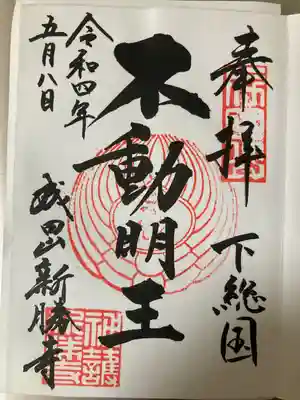 奉拝
下総国
不動明王
令和四年
五月八日
成田山新勝寺